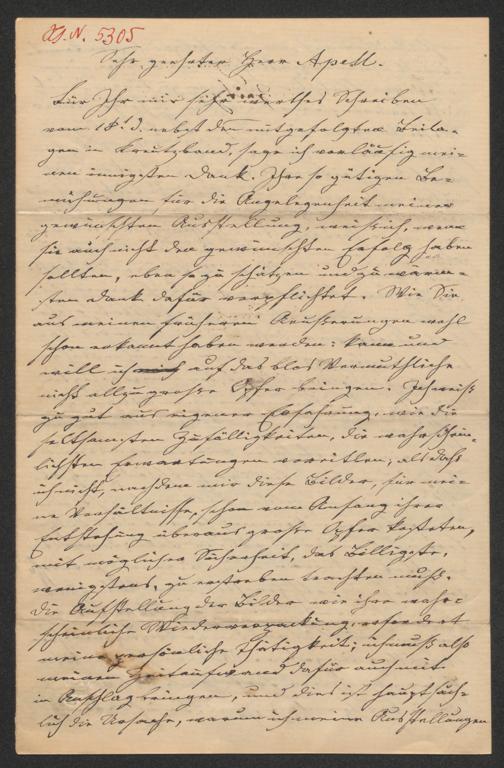 J.N. 5305
Sehr geehrter Herr Apell.
Für Ihr mir sehr werthes Schreiben
vom 18t d. nebst den mitgefolgten Beila-
gen in Kreutzband, sage ich vorläufig mei-
nen innigsten Dank. Ihre so gütigen Be-
mühungen für die Angelegenheit meiner
gewünschten Ausstellung, weiß ich, wenn
sie auch nicht den gewünschten Erfolg haben
sollten, eben so zu schätzen und zu warm-
sten Dank dafür verpflichtet. Wie Sie
aus meinen früheren Äußerungen wohl
schon erkannt haben werden: kann und
will ich auf das blos Vermuthliche
nicht allzu große Opfer bringen. Ich weiß
zu gut aus eigener Erfahrung, wie die
seltsamsten Zufälligkeiten, die wahrschein-
lichsten Erwartungen vereitlen; als daß
ich nicht, nachdem mir diese Bilder, für mei-
ne Verhältnisse, schon vom Anfang ihrer
Entstehung überaus große Opfer kosteten,
mit möglicher Sicherheit, das Billigste,
wenigstens, zu erstreben trachten muß.
Die Aufstellung der Bilder wie ihre wahr-
scheinliche Wiederverpackung, erfordert
meine persönliche Thätigkeit; ich muß also
meinen Zeitaufwand dafür auch mit
in Anschlag bringen, und dies ist hauptsäch-
lich die Ursache, warum ich meine Ausstellungen